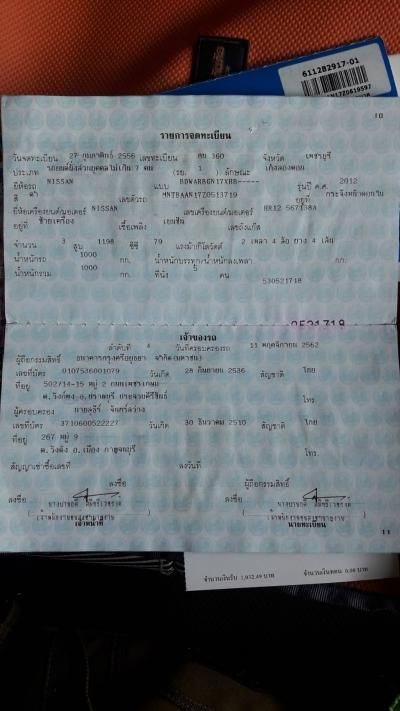 611282917-01
10
รายการจดทะเบียน
วันจดทะเบียน 27 กุมภาพันธ์ 2556 เลขทะเบียน กน 360 จังหวัด เพชรบุรี
ประเภท รถยนต์นั่งส่วนบุคคลไม่เกิน 7 คน (รย. 1 ) ลักษณะ เก๋งสองตอน
ยี่ห้อรถ NISSAN แบบ BDWARBGN17XHB----- รุ่นปี ค.ศ. 2012
สี ดำ เลขตัวรถ MNTBAAN17Z0513719 อยู่ที่
ยี่ห้อเครื่องยนต์/มอเตอร์ NISSAN เลขเครื่องยนต์/มอเตอร์ HR12 567138A
อยู่ที่ ซ้ายเครื่อง เชื้อเพลิง เบนซิน เลขถังแก๊ส
จำนวน 3 สูบ 1198 ซีซี 79 แรงม้า/กิโลวัตต์ 2 เพลา 4 ล้อ ยาง 4 เส้น
น้ำหนักรถ 1000 กก. น้ำหนักบรรทุก/น้ำหนักลงเพลา กก.
น้ำหนักรวม 1000 กก. ที่นั่ง 5 คน
530521718
เจ้าของรถ
ลำดับที่ 4 วันที่ครอบครองรถ 11 พฤศจิกายน 2562
ผู้ถือกรรมสิทธิ์ ธนาคารกรุงศรีอยุธยา จำกัด(มหาชน)
เลขที่บัตร 0107536001079 วันเกิด 28 กันยายน 2536 สัญชาติ ไทย
ที่อยู่ 502/14-15 หมู่ 2 ถนนเพชรเกษม
ต.วังก์พง อ.ปราณบุรี ประจวบคีรีขันธ์ โทร.
ผู้ครอบครอง
เลขที่บัตร 3710600522227 วันเกิด 30 ธันวาคม 2510 สัญชาติ ไทย
ที่อยู่ 267 หมู่ 9
ต.วังด้ง อ.เมือง กาญจนบุรี โทร.
สัญญาเช่าซื้อเลขที่ ลงวันที่
ลงชื่อ ผู้ถือกรรมสิทธิ์
ลงชื่อ ลงชื่อ
เจ้าหน้าที่ นายทะเบียน
11
จำนวนเงินรับ 1,032.49 บาท จำนวนเงินทอน 0.00 บาท